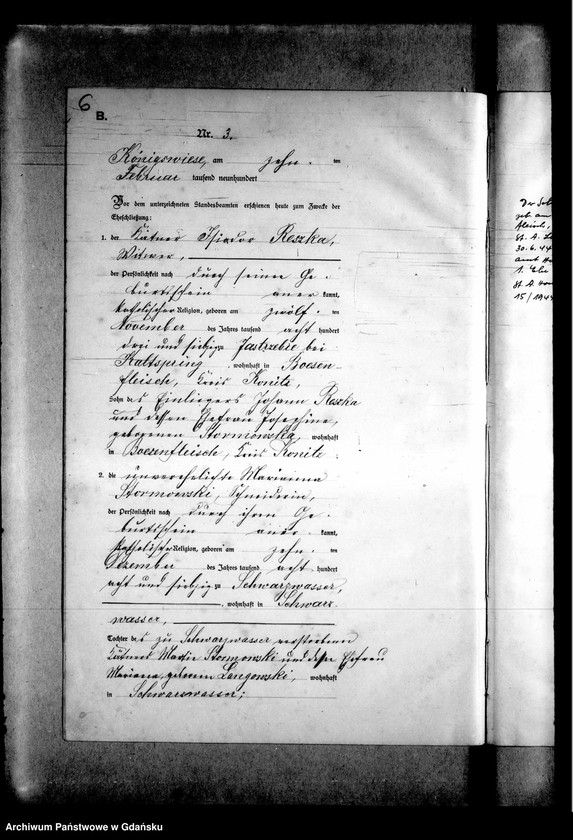 6
B.
Nr. 3.
Königswiese, am zehn ten
Februar tausend neunhundert
Vor dem unterzeichneten Standesbeamten erschienen heute zum Zwecke der
Eheschließung:
1. der Kätner Isidor Reszka,
Witwer,
der Persönlichkeit nach durch seinen Ge-
burtsschein aner kannt,
katholischer Religion, geboren am zwölf ten
November des Jahres tausend acht hundert
drei und siebzig Jastrzebie bei
Kaltspring, wohnhaft in Boesen-
fleisch, Kreis Konitz,
Sohn des Einliegers Johann Reszka
und dessen Ehefrau Josephine,
geborenen Stormowska, wohnhaft
in Boesenfleisch, Kreis Konitz
2. die unverehelichte Marianna
Stormowski, Schneiderin,
der Persönlichkeit nach durch ihren Ge-
burtsschein aner kannt,
katholischer Religion, geboren am zehn ten
Dezember des Jahres tausend acht hundert
acht und siebzig Schwarzwasser,
, wohnhaft in Schwarz-
wasser,
Tochter des zu Schwarzwasser verstorbenen
Kätners Martin Stormowski und dessen Ehefrau
Mariana, geborenen Langowski, wohnhaft
in Schwarzwasser;
Der
geb. am
fleisch,
St. A.
30.6.44
amt
1. Ehe
St. A.
15/194
Archiwum Państwowe w Gdańsku